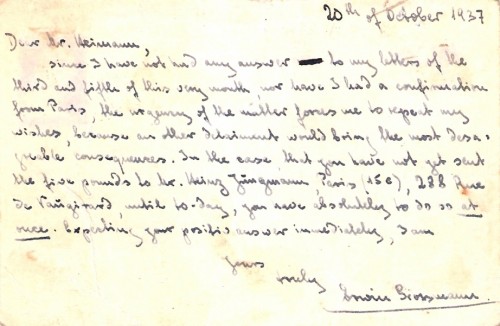 20th of October 1937
Dear Mr. Heimann,
since I have not had any answer to my letters of the
third and fifth of this very month nor have I had a confirmation
from Paris, the urgency of the matter forces me to repeat my
wishes, because an other detainment would bring the most desa-
greable consequences. In the case that you have not yet sent
the five pounds to Mr. Heinz Jungmann, Paris (15e), 288 Rue
de Vaugirard, until to-day, you have absolutely to do so at
once. Expecting your positiv answer immediately, I am
yours
truly
Erwin